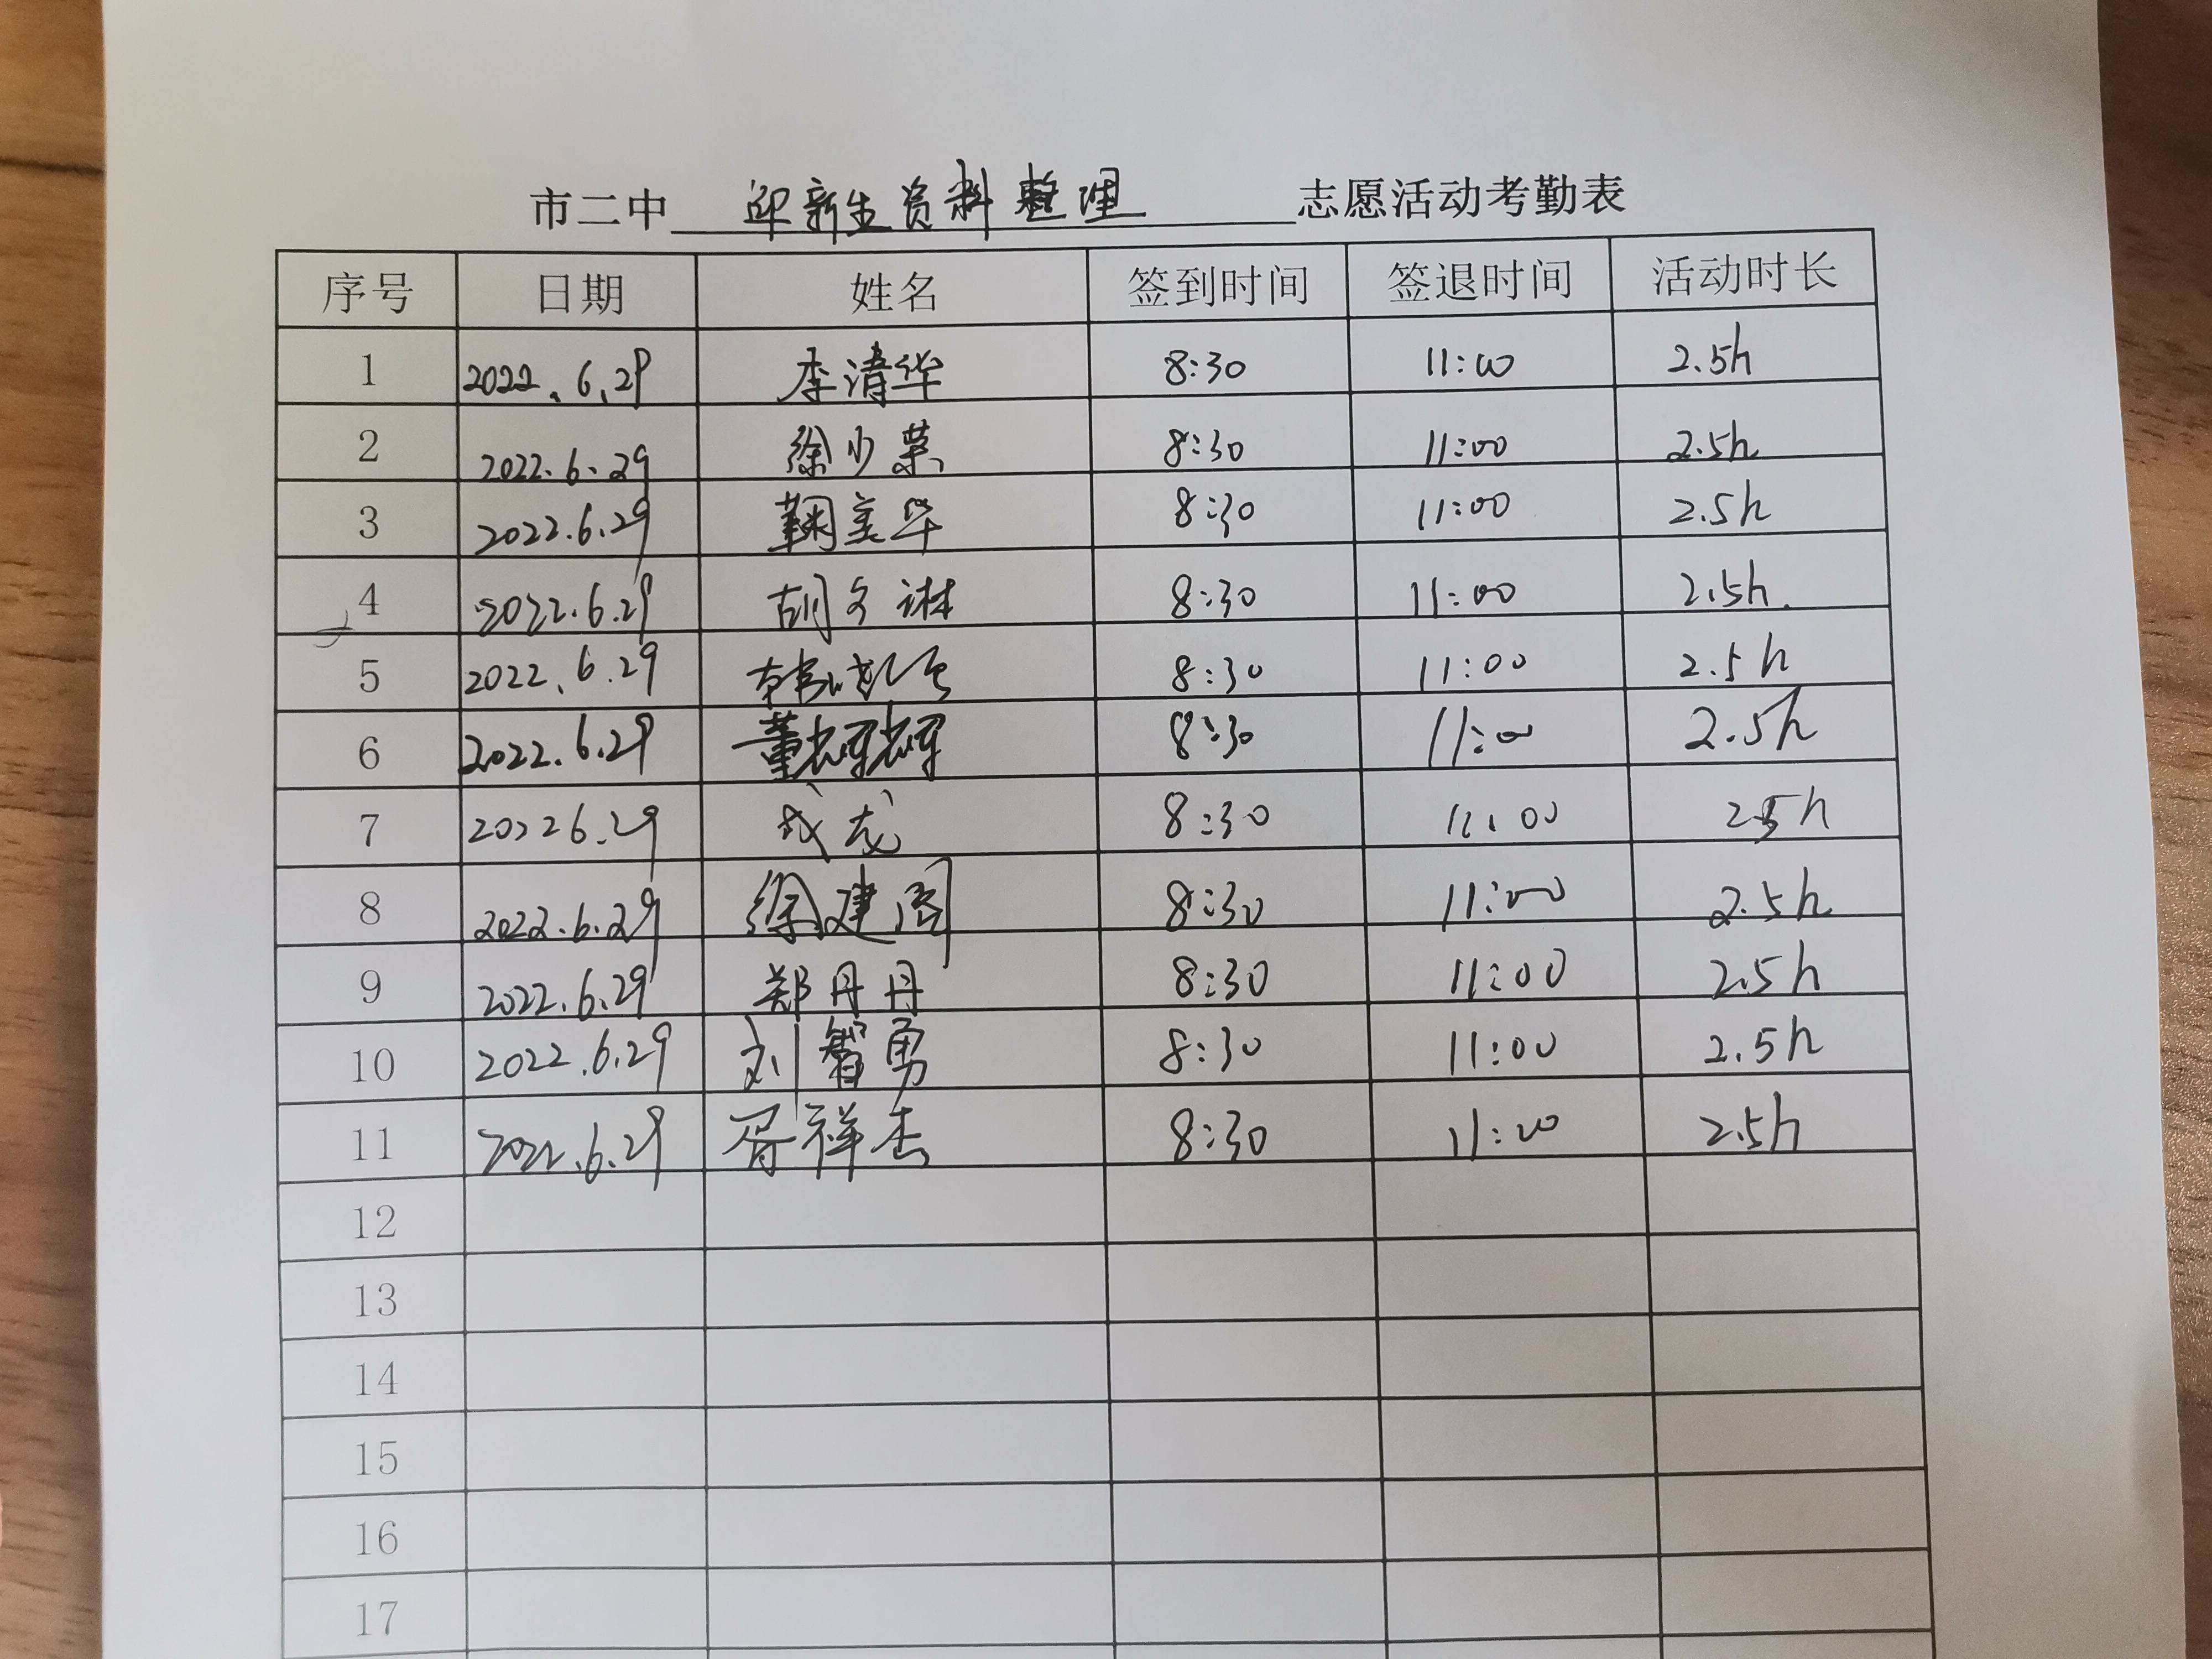 市二中 迎新生资料整理 志愿活动考勤表
序号 日期 姓名 签到时间 签退时间 活动时长
1 2022.6.29 李清华 8:30 11:00 2.5h
2 2022.6.29 徐少荣 8:30 11:00 2.5h
3 2022.6.29 鞠 华 8:30 11:00 2.5h
4 2022.6.29 胡文 8:30 11:00 2.5h
5 2022.6.29 韩 8:30 11:00 2.5h
6 2022.6.29 董耀耀 8:30 11:00 2.5h
7 2022 6.29 成龙 8:30 11:00 2.5h
8 2022.6.29 徐建 8:30 11:00 2.5h
9 2022.6.29 郑丹丹 8:30 11:00 2.5h
10 2022.6.29 刘智勇 8:30 11:00 2.5h
11 2022.6.29 胥祥杰 8:30 11:00 2.5h
12
13
14
15
16
17